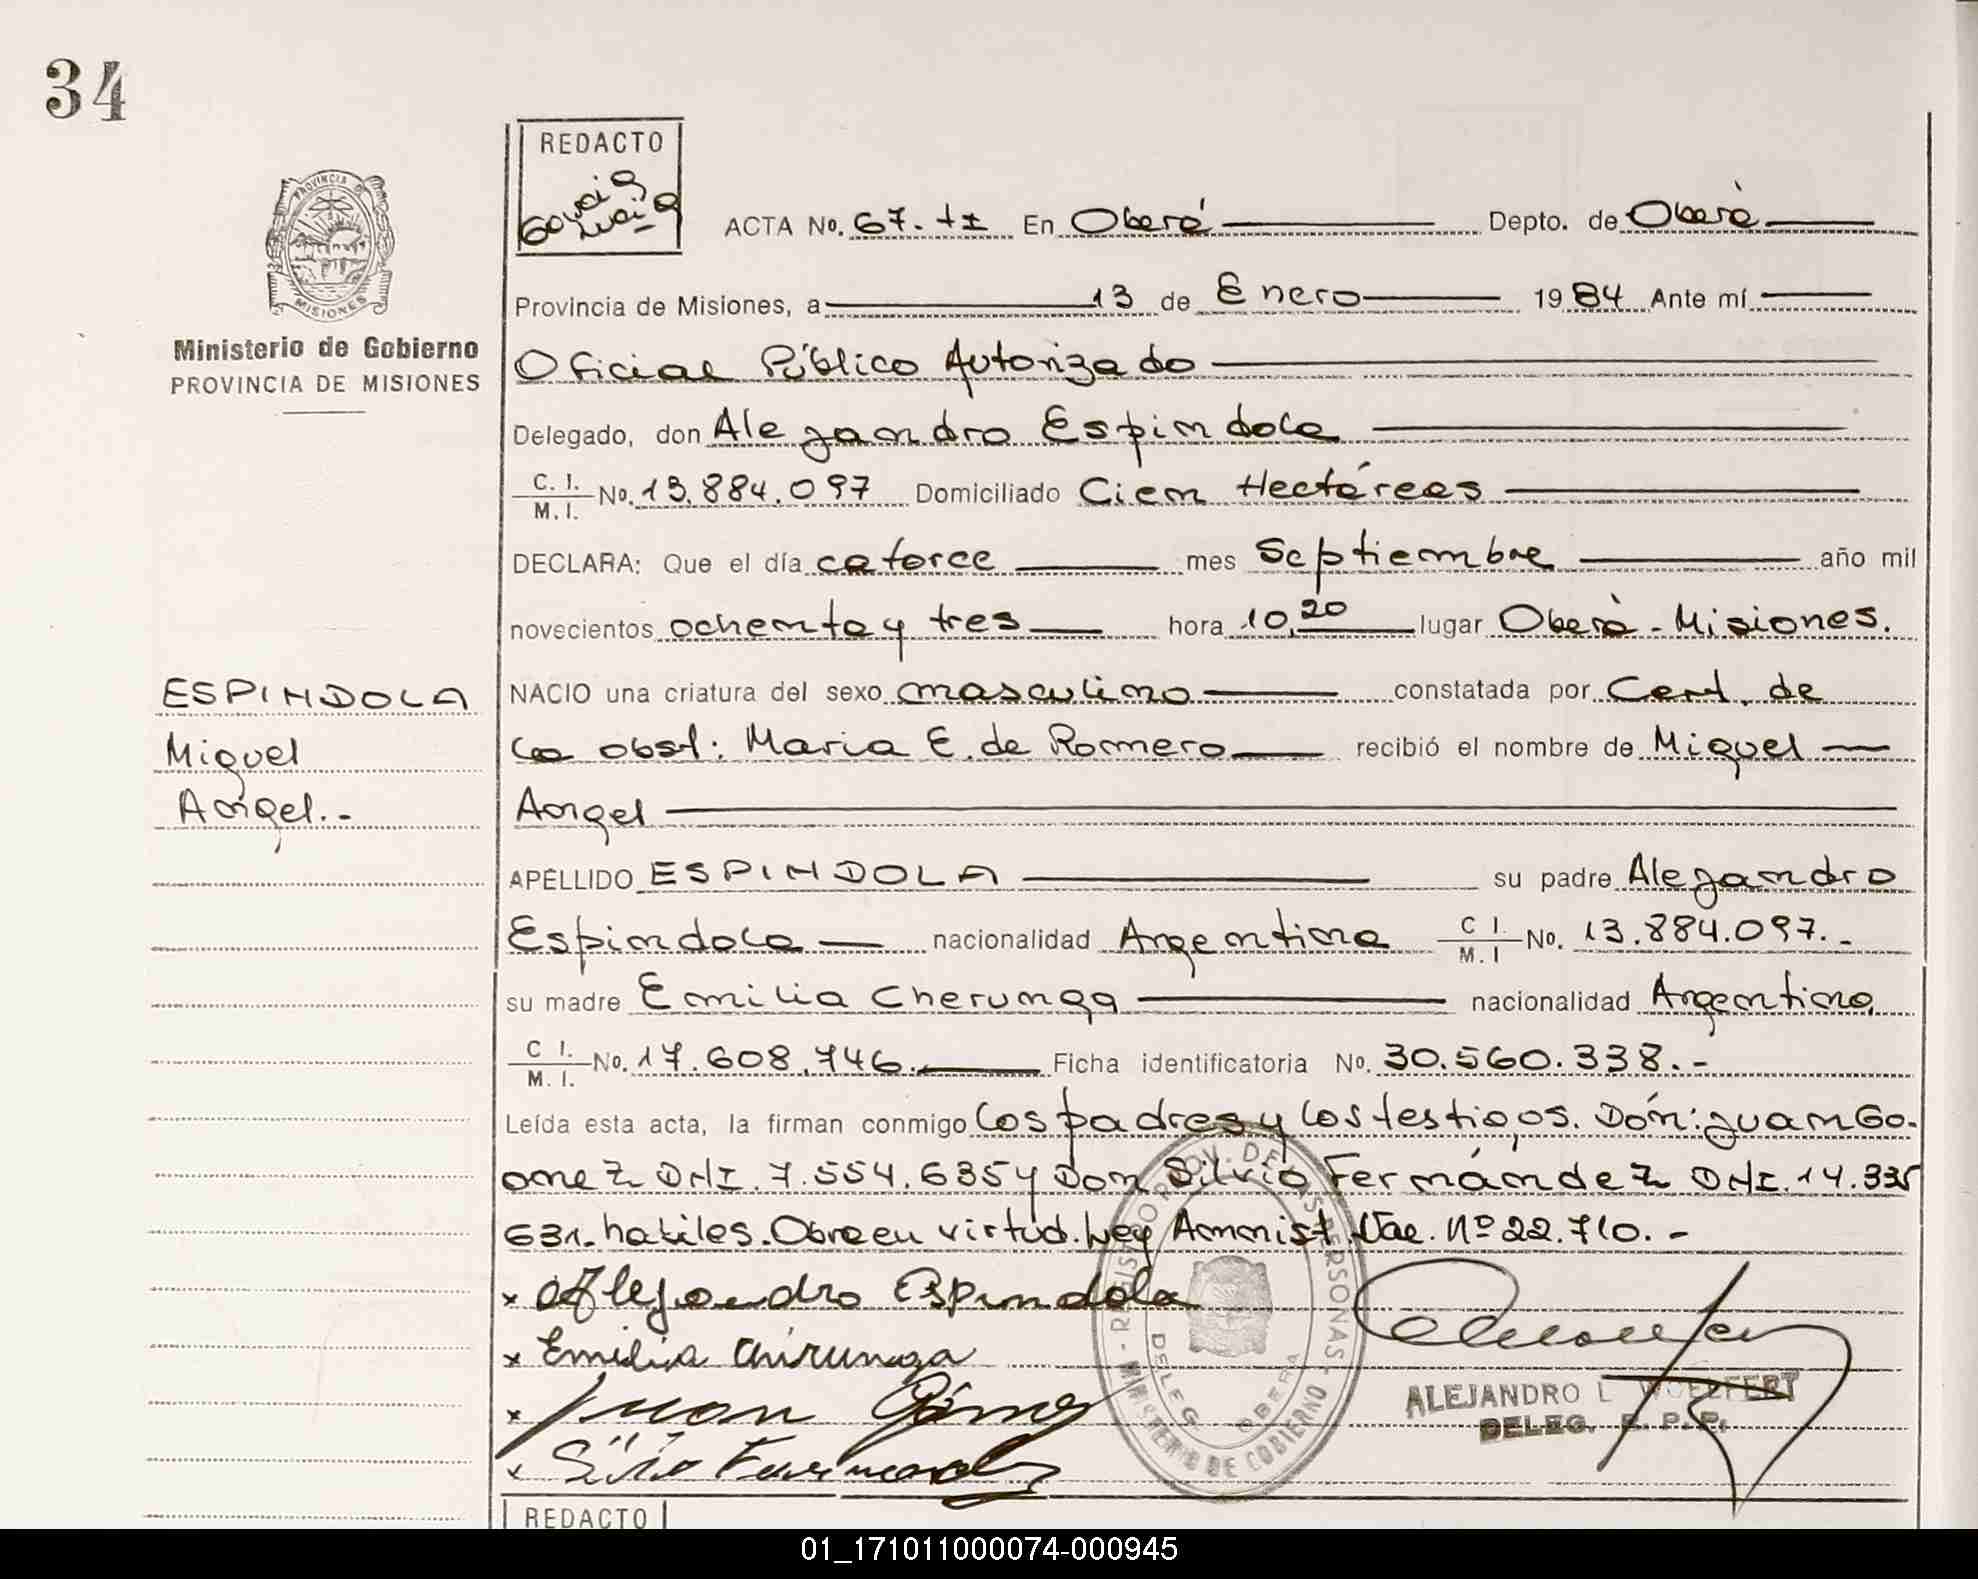 34
REDACTO
PROVINCIA
MISIONES
Ministerio de Gobierno
PROVINCIA DE MISIONES
ACTA No. 67. tI En Oberá Depto. de Oberá
Provincia de Misiones, a 13 de Enero 1984 Ante mí
Oficial Público Autorizado
Delegado, don Alejandro Espindola
C. I. / M. I. No. 13.884.097 Domiciliado Cien Hectáreas
DECLARA: Que el día catorce mes Septiembre año mil
novecientos ochenta y tres hora 10,20 lugar Oberá - Misiones.
ESPINDOLA
Miguel
Angel.-
NACIO una criatura del sexo masculino constatada por Cert. de
la obst: Maria E. de Romero recibió el nombre de Miguel
Angel
APELLIDO ESPINDOLA su padre Alejandro
Espindola nacionalidad Argentina C I. / M. I No. 13.884.097.-
su madre Emilia Cherunga nacionalidad Argentina
C I. / M. I. No. 17.608.746. Ficha identificatoria No. 30.560.338.-
Leída esta acta, la firman conmigo los padres y los testigos. Don: Juan Go-
mez DNI. 7.554.635 y Don Silvio Fernández DNI. 14.335
631. habiles. Obra en virtud. Ley Amnist. Nac. Nº 22.710.-
x Alejandro Espindola
x Emilia Chirunga
x Juan Gómez
x Silvio Fernandez
REGISTRO PROV. DE LAS PERSONAS
MINISTERIO DE GOBIERNO
DELEG. OBERA
ALEJANDRO L WOELFERT
DELEG. R. P. P.
REDACTO
01_171011000074-000945